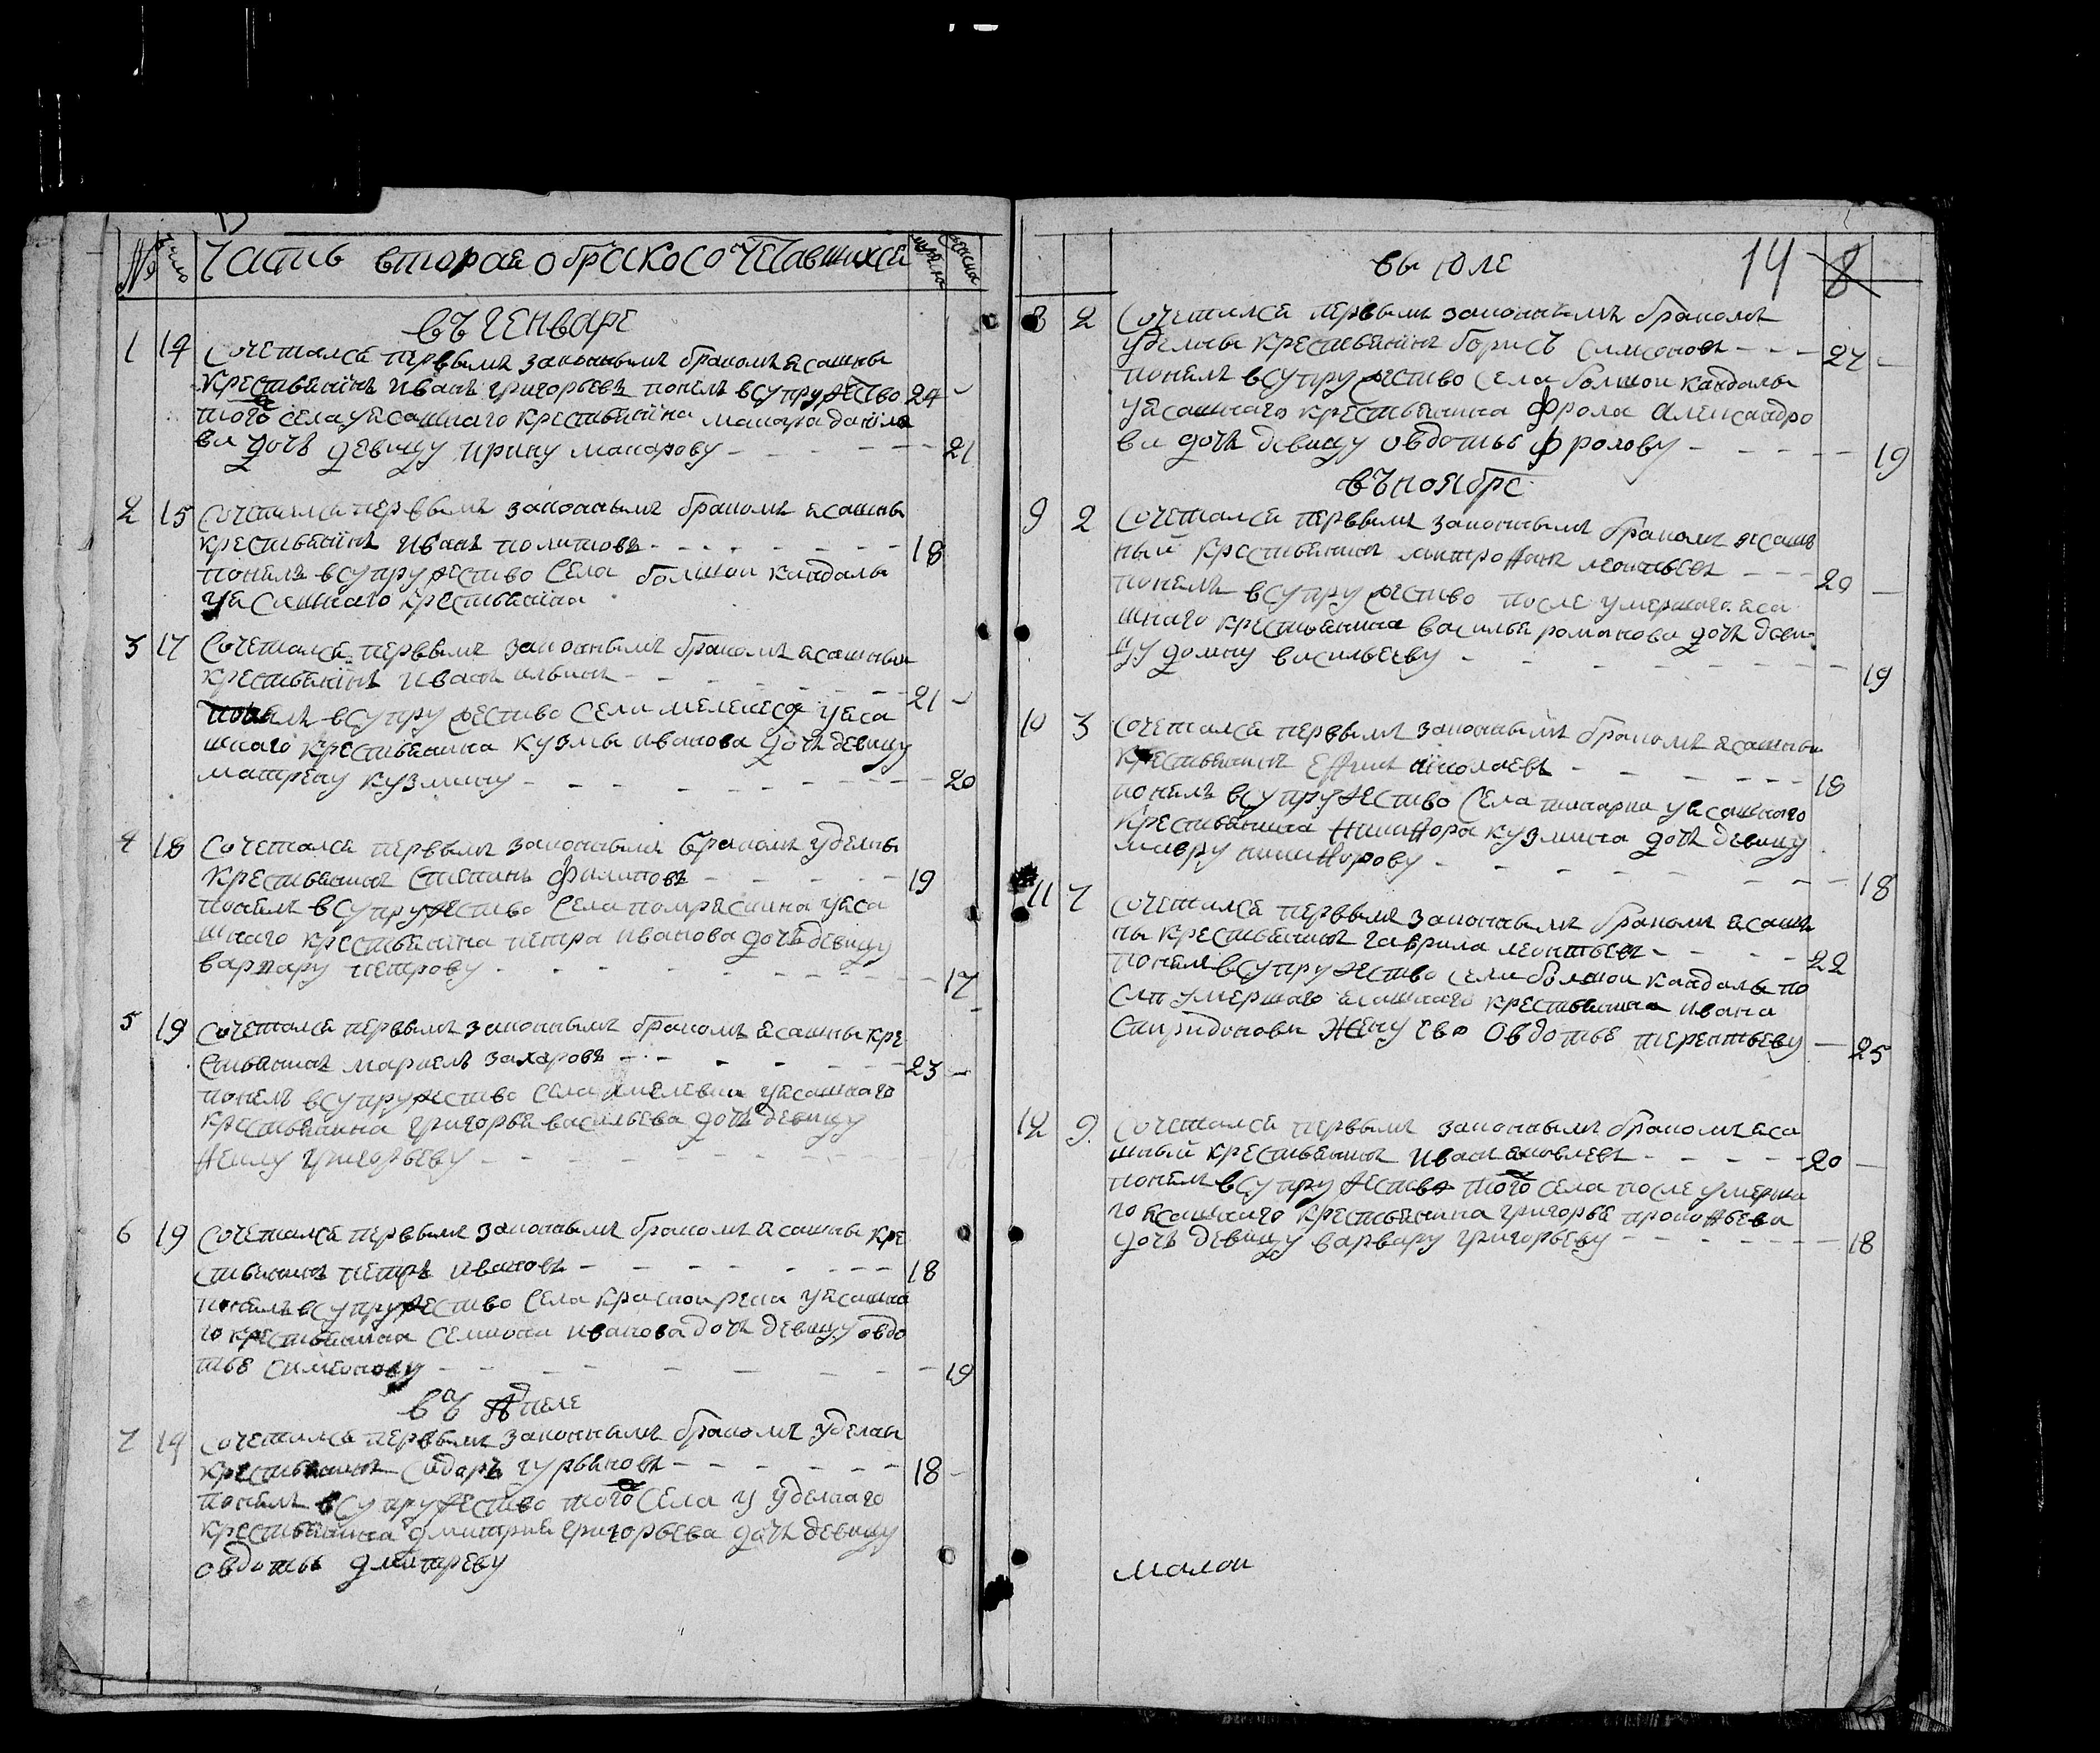 № число Часть вторая о бракосочетавшихся мужска женска
въ генваре
1 14 Сочетался первымъ законнымъ бракомъ ясашны
крестьянинъ Иванъ Григорьевъ понялъ в супружество 24
того села у ясашнаго крестьянина макара данило
ва дочь девицу ирину макарову - - - - - 21
2 15 Сочетался первымъ законнымъ бракомъ ясашны
крестьянинъ Иванъ - - - - - - 18
понялъ в супружество Села болшои кандалы
у ясашнаго крестьянина
3 17 Сочетался первымъ законнымъ бракомъ ясашныи
крестьянинъ Иванъ ильинъ - - - - - - 21
понялъ в супружество Села мелекеса у яса
шнаго крестьянина кузмы иванова дочь девицу
матрену кузмину - - - - - - - 20
4 18 Сочетался первымъ законнымъ бракомъ уделны
крестьянинъ Степанъ филиповъ - - - - - 19
понялъ в супружество Села у яса
шнаго крестьянина петра иванова дочь девицу
варвару петрову - - - - - - - 17
5 19 Сочетался первымъ законнымъ бракомъ ясашны кре
стьянинъ маркелъ захаровъ - - - - - 23
понялъ в супружество Села у ясашнаго
крестьянина григорья васильева дочь девицу
григорьеву - - - - - - -
6 19 Сочетался первымъ законнымъ бракомъ ясашны кре
стьянинъ петръ ивановъ - - - - - - 18
понялъ в супружество Села у ясашна
го крестьянина Семиона иванова дочь девицу овдо
тью Симеонову - - - - - - - 19
въ Апреле
7 14 Сочетался первымъ законнымъ бракомъ уделны
крестьянинъ Сидаръ гурьяновъ - - - - - - 18
понялъ в супружество того Села у уделнаго
крестьянина дмитрия григорьева дочь девицу
овдотью дмитреву
вы юле 14 8
8 2 Сочетался первымъ законнымъ бракомъ
уделны крестьянинъ борисъ - - - 27
понялъ в супружество села болшои кандалы
у ясашнаго крестьянина фрола Александро
ва дочь девицу овдотью фролову - - - - - 19
въ ноябре
9 2 Сочетался первымъ законнымъ бракомъ ясаш
ный крестьянинъ митрофанъ леонтьевъ - - - 20
понялъ в супружество после умершаго яса
шнаго крестьянина василья романова дочь деви
цу домну васильеву - - - - - - - 19
10 3 Сочетался первымъ законнымъ бракомъ ясашныи
крестьянинъ Ефимъ николаевъ - - - - - - 18
понялъ в супружество Села у ясашнаго
крестьянина никифора кузмина дочь девицу
мавру никифорову - - - - - - 18
11 7 Сочетался первымъ законнымъ бракомъ ясаш
ны крестьянинъ гаврила леонтьевъ - - - - 22
понялъ в супружество села болшои кандалы по
сле умершаго ясашнаго крестьянина ивана
Спиридонова жену ево Овдотью терентьеву - 25
12 9 Сочетался первымъ законнымъ бракомъ яса
шный крестьянинъ Иванъ яковлевъ - - - - - 20
понялъ в супружество того села после умерша
го ясашнаго крестьянина григорья прокофьева
дочь девицу варвару григорьеву - - - - - - 18
малои